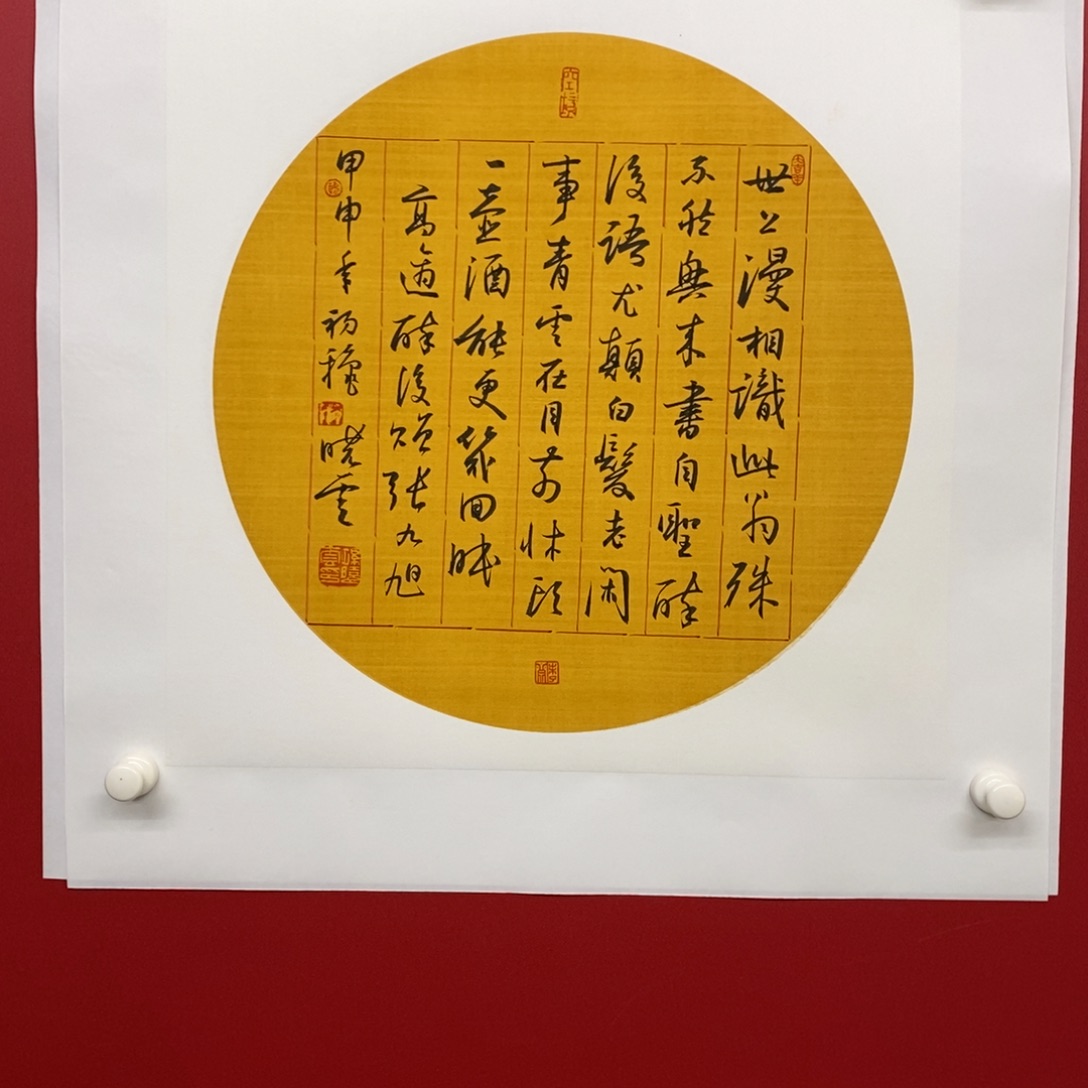 世上漫相識此翁殊
不然興来書自聖醉
後語尤顛白髮老閑
事青雲在目前牀頭
一壺酒能更幾回眠
高適醉後贈張九旭
甲申年初穐曉雲